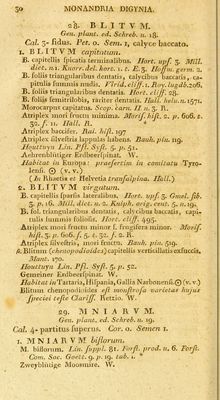 30 MONANDRIA DIGYNIA.
28. BLITVM.
Gen. plant. ed. Schreb. n. 18.
Cal. 3-fidus. Pet. 0. Sem. 1, calyce baccato.
1. BLITVM capitatum.
B. capitellis spicatis terminalibus. Hort. upf. 3. Mill.
dict. n1. Knorr. del. hort. 1. t. E. 3. Hoffm. germ. 2.
B. foliis triangularibus dentatis, calycibus baccatis, ca-
pitulis summis nudis. Virid. cliff. 1. Roy. lugdb. 206.
B. foliis triangularibus dentatis. Hort. cliff. 28.
B. foliis semitrilobis, rariter dentatis. Hall. helv. n. 1571.
Morocarpus capitatus. Scop. carn. II n. 3. R.
Atriplex mori fructu minima. Moris. hist. 2. p. 606. s.
32. f. 11. Hall. R.
Atriplex baccifer. Bat. hist. 197
Atriplex silvestris lappulas habens. Bauh. pin. 119.
Houttuyn Lin. Pfl. Syst. 5. p. 51.
Aehrenblütiger Erdbeerspinat. W.
Habitat in Europa: praesertim in comitatu Tyro-
lensi. ☉ (v. v.)
(In Rhaetia et Helvetia transalpina. Hall.)
2. BLITVM virgatum.
B. capitellis sparsis lateralibus. Hort. upf. 3. Gmel. sib.
3. p. 16. Mill. dict. n. 2. Kniph. orig. cent. 5. n. 19.
B. fol. triangularibus dentatis, calycibus baccatis, capi-
tulis summis foliosis. Hort. cliff. 495.
Atriplex mori fructu minor f. frugifera minor. Moris.
hist. 3. p. 606. s. 5. t. 32. f. 2. R.
Atriplex silvestris, mori fructu. Bauh. pin. 519.
Blitum (chenopodioides) capitellis verticillatis exsuccis,
Mant. 170.
Houttuyn Lin. Pfl. Syst. 5. p. 52.
Gemeiner Erdbeerspinat. W.
Habitat in Tartaria, Hispania, Gallia Narbonensi. ☉ (v. v.)
Blitum chenopodioides est monstrosa varietas hujus
speciei teste Clariss. Retzio. W.
29. MNIARVM.
Gen. plant. ed. Schreb. n. 19.
Cal. 4-partitus superus. Cor. 0. Semen 1.
1. MNIARVM biflorum.
M. biflorum. Lin. suppl. 81. Forst. prod. n. 6. Forst.
Com. Soc. Goett. 9. p. 19. tab. 1.
Zweyblütige Moosmire. W.